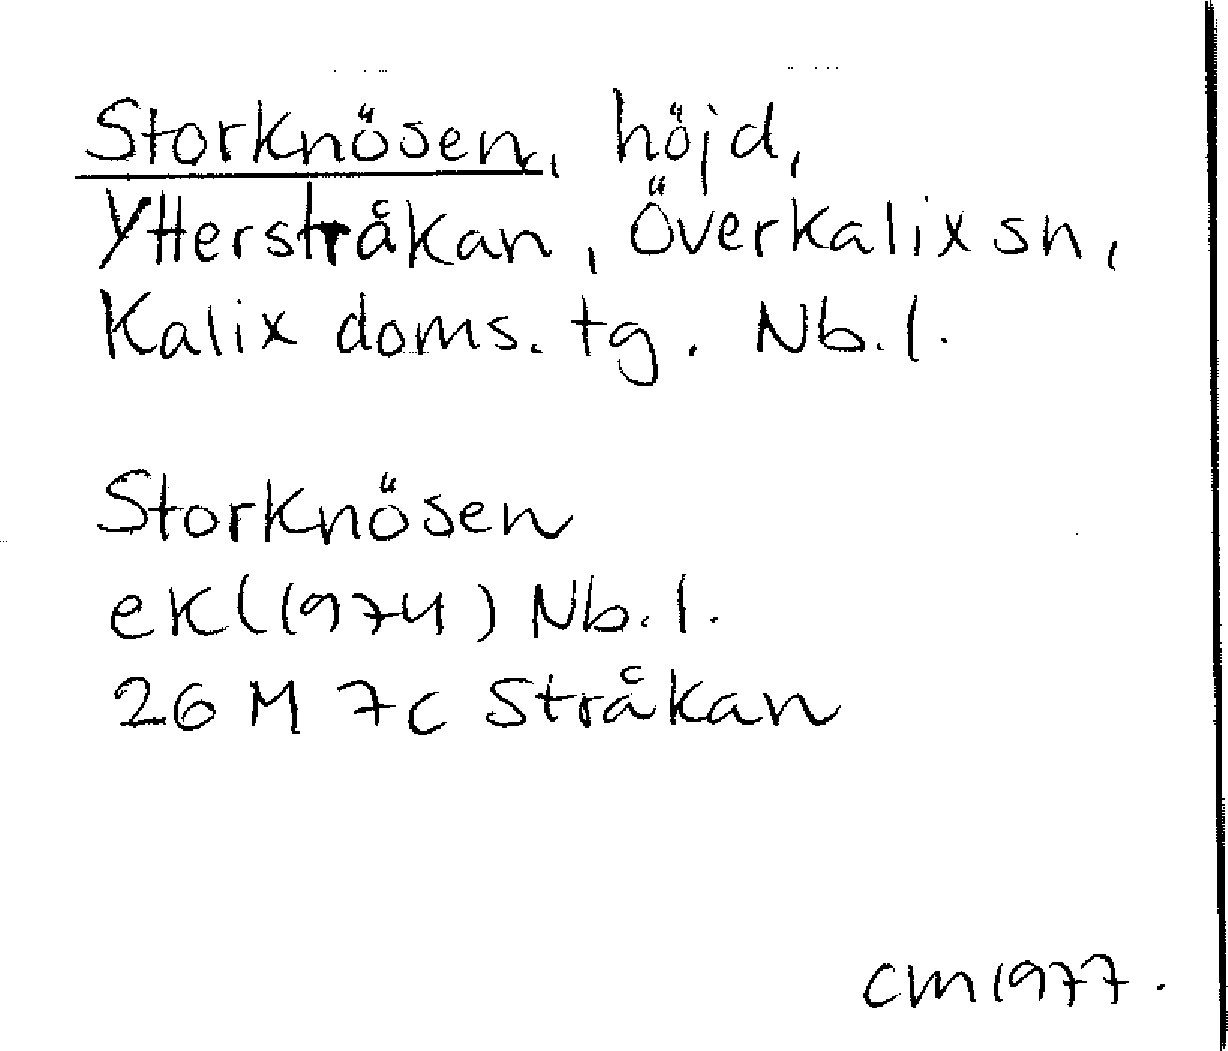 Storknösen, höjd,
Ytterstråkan, Överkalix sn,
Kalix doms. tg. Nb. l.
Storknösen
ek (1974) Nb. l.
26 M 7c Stråkan
CM 1977.